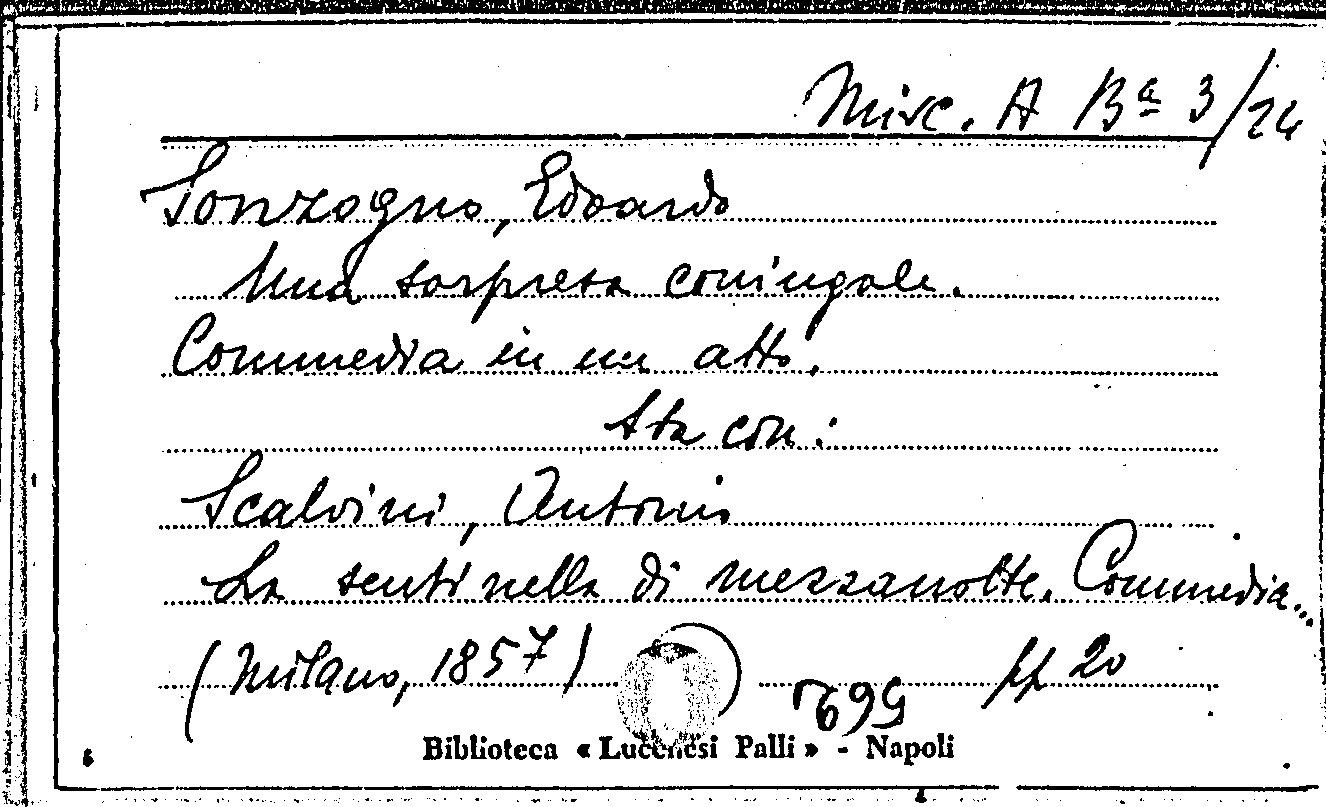 Misc. A Bª 3/24
Sonzogno, Edoardo
Una sorpresa coniugale.
Commedia in un atto.
Sta con:
Scalvini, Antonio
La sentinella di mezzanotte. Commedia...
(Milano, 1857) pp 20
Biblioteca « Lucchesi Palli » - Napoli